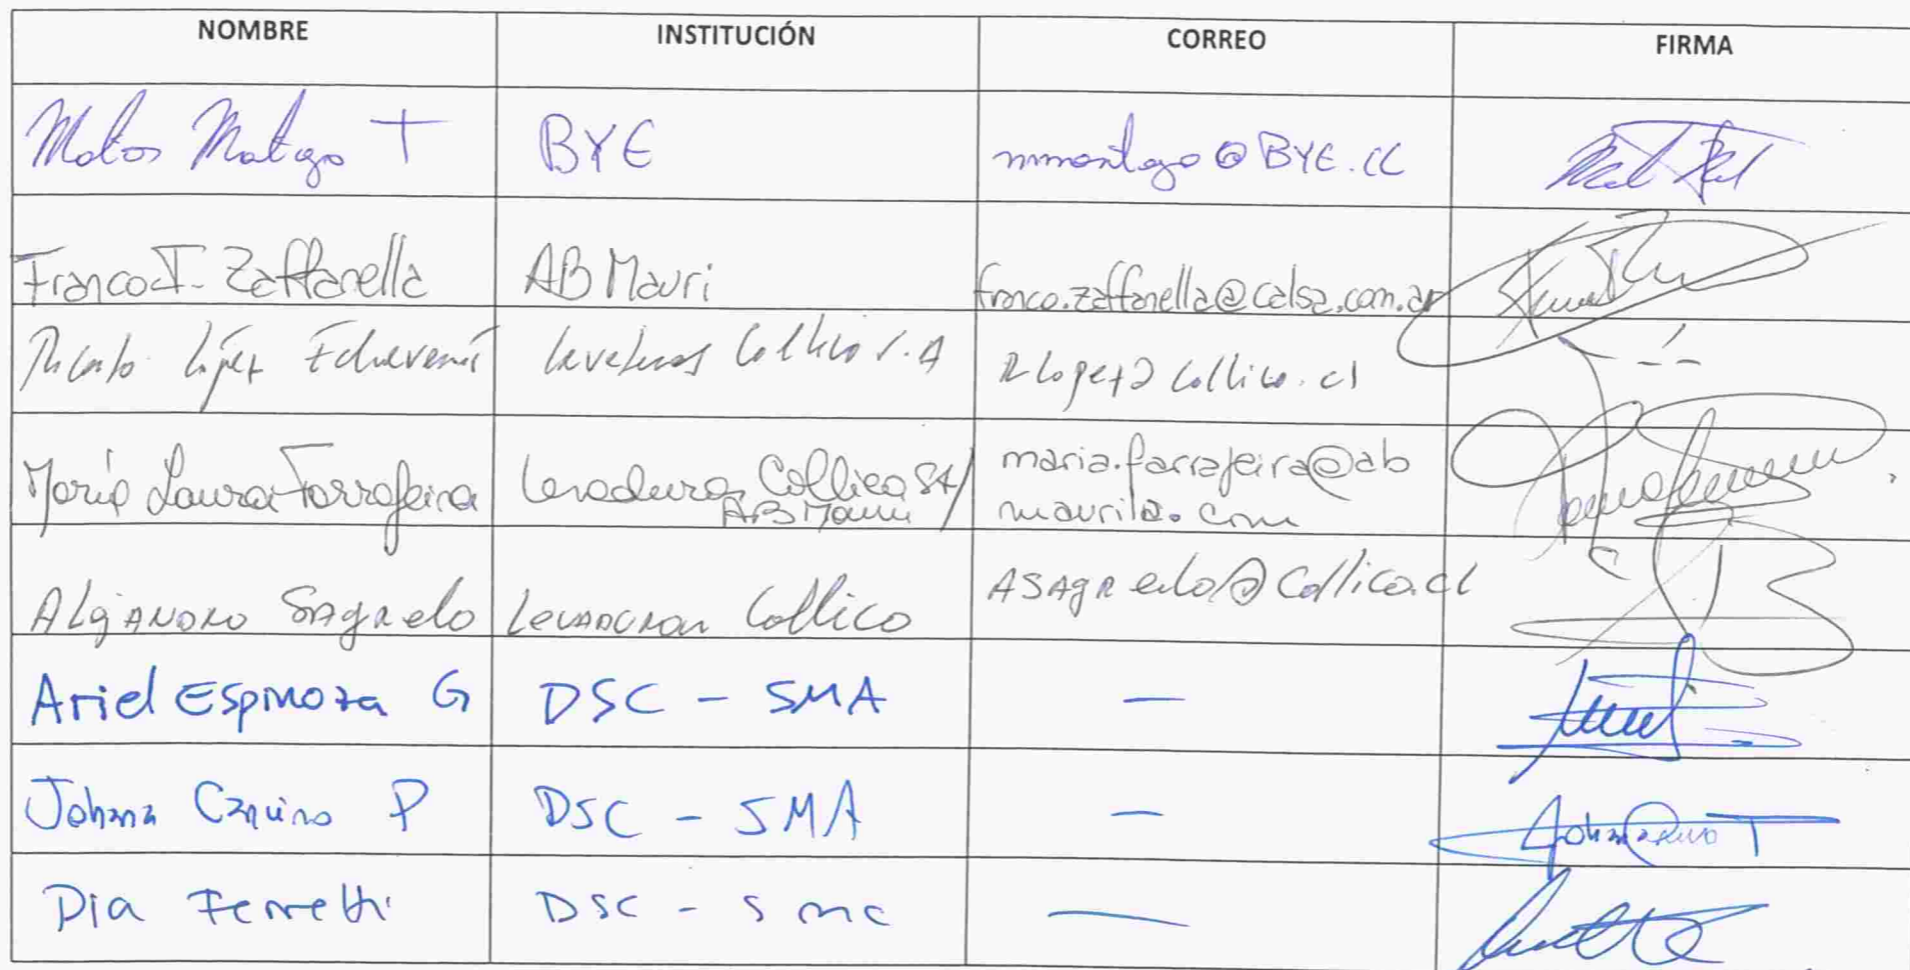 NOMBRE INSTITUCIÓN CORREO FIRMA
Matías Montoya T BYE mmontoya@BYE.CL
Franco F. Zaffanella AB Mauri franco.zaffanella@calsa.com.ar
Ricardo López Echeverría Levaduras Collico S.A RLopez@collico.cl
María Laura Farrajeira Levaduras Collico SA/ maria.farrajeira@ab
AB Mauri maurila.com
Alejandro Sagredo Levaduras Collico ASAgredo@Collico.cl
Ariel Espinoza G DSC - SMA -
Johana Cancino P DSC - SMA -
Pia Ferretti DSC - SMA -